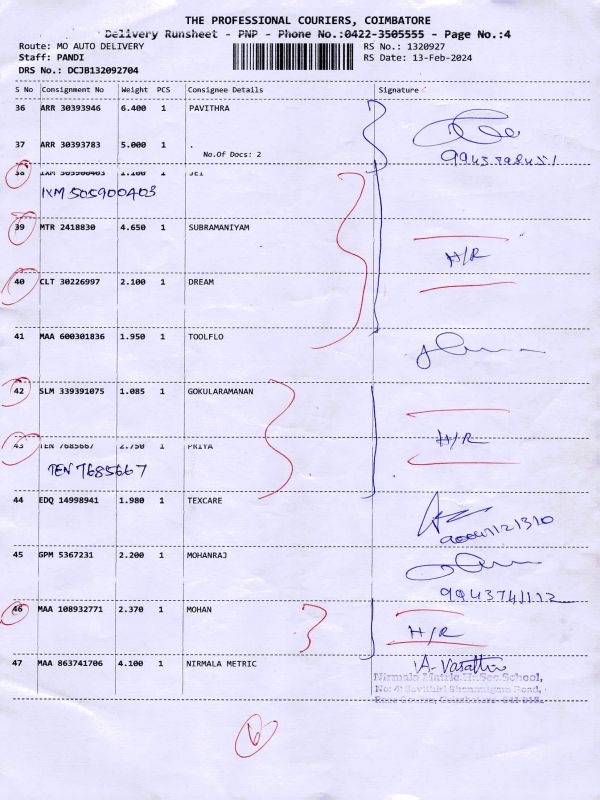 THE PROFESSIONAL COURIERS, COIMBATORE
Delivery Runsheet - PNP - Phone No.:0422-3505555 - Page No.:4
Route: MO AUTO DELIVERY
RS No.: 1320927
Staff: PANDI
RS Date: 13-Feb-2024
DRS No.: DCJB132092704
S No Consignment No Weight PCS Consignee Details Signature
36 ARR 30393946 6.400 1 PAVITHRA
37 ARR 30393783 5.000 1 .
No.Of Docs: 2
38 IXM 505900403 1.100 1 JEI
IXM 505900403
39 MTR 2418830 4.650 1 SUBRAMANIYAM
H/R
40 CLT 30226997 2.100 1 DREAM
41 MAA 600301836 1.950 1 TOOLFLO
42 SLM 339391075 1.085 1 GOKULARAMANAN
H/R
43 TEN 7685667 2.750 1 PRIYA
TEN 7685667
44 EDQ 14998941 1.980 1 TEXCARE
45 GPM 5367231 2.200 1 MOHANRAJ
9943741112
46 MAA 108932771 2.370 1 MOHAN
H/R
47 MAA 863741706 4.100 1 NIRMALA METRIC
Nirmala Matric.Hr.Sec.School,
6